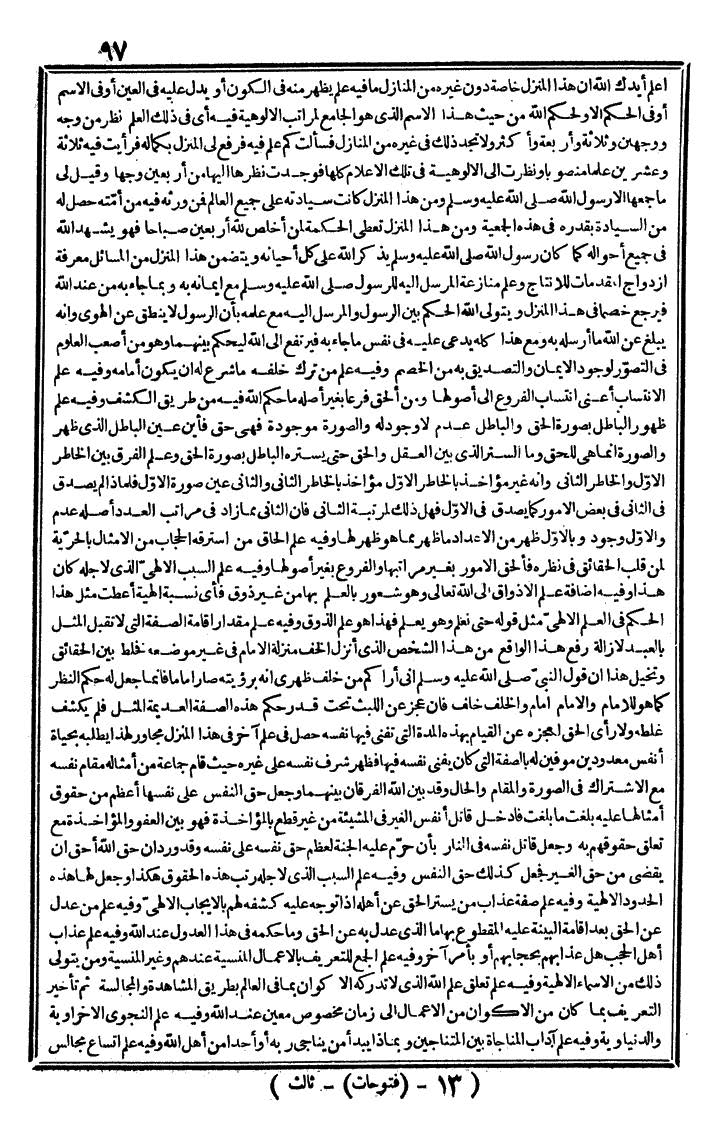 ٩٧
اعلم أيدك الله ان هذا المنزل خاصة دون غيره من المنازل مافيه علم يظهر منه فى الكون أو يدل عليه فى العين أو فى الاسم
أو فى الحكم الا ولحكم الله من حيث هذا الاسم الذى هو الجامع لمراتب الالوهية فيه أى فى ذلك العلم نظر من وجه
ووجهين وثلاثة وأربعة وأكثر ولا تجد ذلك فى غيره من المنازل فسألت كم علم فيه فرفع لى المنزل بكماله فرأيت فيه ثلاثة
وعشرين علما منصوبا ونظرت الى الالوهية فى تلك الاعلام كلها فوجدت نظرها اليها من أربعين وجها وقيل لى
ما جمعها الا رسول الله صلى الله عليه وسلم ومن هذا المنزل كانت سيادته على جميع العالم فمن ورثه فيه من أمّته حصل له
من السيادة بقدره فى هذه الجمعية ومن هذا المنزل تعطى الحكمة لمن أخلص لله أربعين صباحا فهو يشهد الله
فى جميع أحواله كما كان رسول الله صلى الله عليه وسلم يذكر الله على كل أحيانه ويتضمن هذا المنزل من المسائل معرفة
ازدواج المقدمات للانتاج وعلم منازعة المرسل اليه للرسول صلى الله عليه وسلم مع ايمانه به وبما جاء به من عند الله
فيرجع خصما فى هذا المنزل ويتولى الله الحكم بين الرسول والمرسل اليه مع علمه بأن الرسول لا ينطق عن الهوى وانه
يبلغ عن الله ما أرسله به ومع هذا كله يدعى عليه فى نفس ماجاء به فيرتفع الى الله ليحكم بينهما وهو من أصعب العلوم
فى التصوّر لوجود الايمان والتصديق به من الخصم وفيه علم من ترك خلفه ما شرع له ان يكون أمامه وفيه علم
الانتساب أعنى انتساب الفروع الى أصولها ومن ألحق فرعا بغير أصله ما حكم الله فيه من طريق الكشف وفيه علم
ظهور الباطل بصورة الحق والباطل عدم لا وجود له والصورة موجودة فهى حق فأين عين الباطل الذى ظهر
والصورة انما هى للحق وما الستر الذى بين العقل والحق حتى يستره الباطل بصورة الحق وعلم الفرق بين الخاطر
الاوّل والخاطر الثانى وانه غير مؤاخذ بالخاطر الاوّل مؤاخذ بالخاطر الثانى والثانى عين صورة الاوّل فلماذا لم يصدق
فى الثانى فى بعض الامور كما يصدق فى الاوّل فهل ذلك لمرتبة الثانى فان الثانى مما زاد فى مراتب العدد أصله عدم
والاوّل وجود وبالاوّل ظهر من الاعداد ما ظهر بما هو ظهر لها وفيه علم الحاق من استرقه الحجاب من الامثال بالحرّية
لمن قلب الحقائق فى نظره فألحق الامور بغير مراتبها والفروع بغير أصولها وفيه علم السبب الالهىّ الذى لاجله كان
هذا وفيه اضافة علم الاذواق الى الله تعالى وهو شعور بالعلم بها من غير ذوق فأى نسبة الهية أعطت مثل هذا
الحكم فى العلم الالهىّ مثل قوله حتى نعلم وهو يعلم فهذا هو علم الذوق وفيه علم مقدار اقامة الصفة التى لا تقبل المثل
بالعبد لازالة رفع هذا الواقع من هذا الشخص الذى أنزل الخلف منزلة الامام فى غير موضعه فخلط بين الحقائق
وتخيل هذا ان قول النبىّ صلى الله عليه وسلم انى أراكم من خلف ظهرى انه برؤيته صار اماما فانما جعل له حكم النظر
كما هو للامام والامام امام والخلف خلف فان عجز عن اللبث تحت قدر حكم هذه الصفة العديمة المثل فلم يكشف
غلطه ولا رأى الحق لعجزه عن القيام بهذه المدة التى تفنى فيها نفسه حصل فى علم آخر فى هذا المنزل مجاور لهذا يطلبه بحياة
أنفس معدودين موفين له بالصفة التى كان يفنى نفسه فيها فظهر شرف نفسه على غيره حيث قام جماعة من أمثاله مقام نفسه
مع الاشتراك فى الصورة والمقام والحال وقد بين الله الفرقان بينهما وجعل حق النفس على نفسها أعظم من حقوق
أمثالها عليه بلغت ما بلغت فادخل قاتل أنفس الغير فى المشيئة من غير قطع بالمؤاخذة فهو بين العفو والمؤاخذة مع
تعلق حقوقهم به وجعل قاتل نفسه فى النار بأن حرّم عليه الجنة لعظم حق نفسه على نفسه وقد وردان حق الله أحق ان
يقضى من حق الغير فجعل كذلك حق النفس وفيه علم السبب الذى لاجله رتب هذه الحقوق هكذا وجعل لها هذه
الحدود الالهية وفيه علم صفة عذاب من يستر الحق عن أهله اذا توجه عليه كشفه لهم بالايجاب الالهىّ وفيه علم من عدل
عن الحق بعد اقامة البينة عليه المقطوع بها ما الذى عدل به عن الحق وما حكمه فى هذا العدول عند الله وفيه علم عذاب
أهل الحجب هل عذابهم بحجابهم أو بأمر آخر وفيه علم الجمع للتعريف بالاعمال المنسية عندهم وغير المنسية ومن يتولى
ذلك من الاسماء الالهية وفيه علم تعلق علم الله الذى لا تدركه الا كوان بما فى العالم بطريق المشاهدة والمجالسة ثم تأخير
التعريف بما كان من الاكوان من الاعمال الى زمان مخصوص معين عند الله وفيه علم النجوى الاخراوية
والدنياوية وفيه علم آداب المناجاة بين المتناجين وبماذا يبدأ من يناجى ربه أو أحدا من أهل الله وفيه علم اتساع مجالس
( ١٣ - (فتوحات) - ثالث )